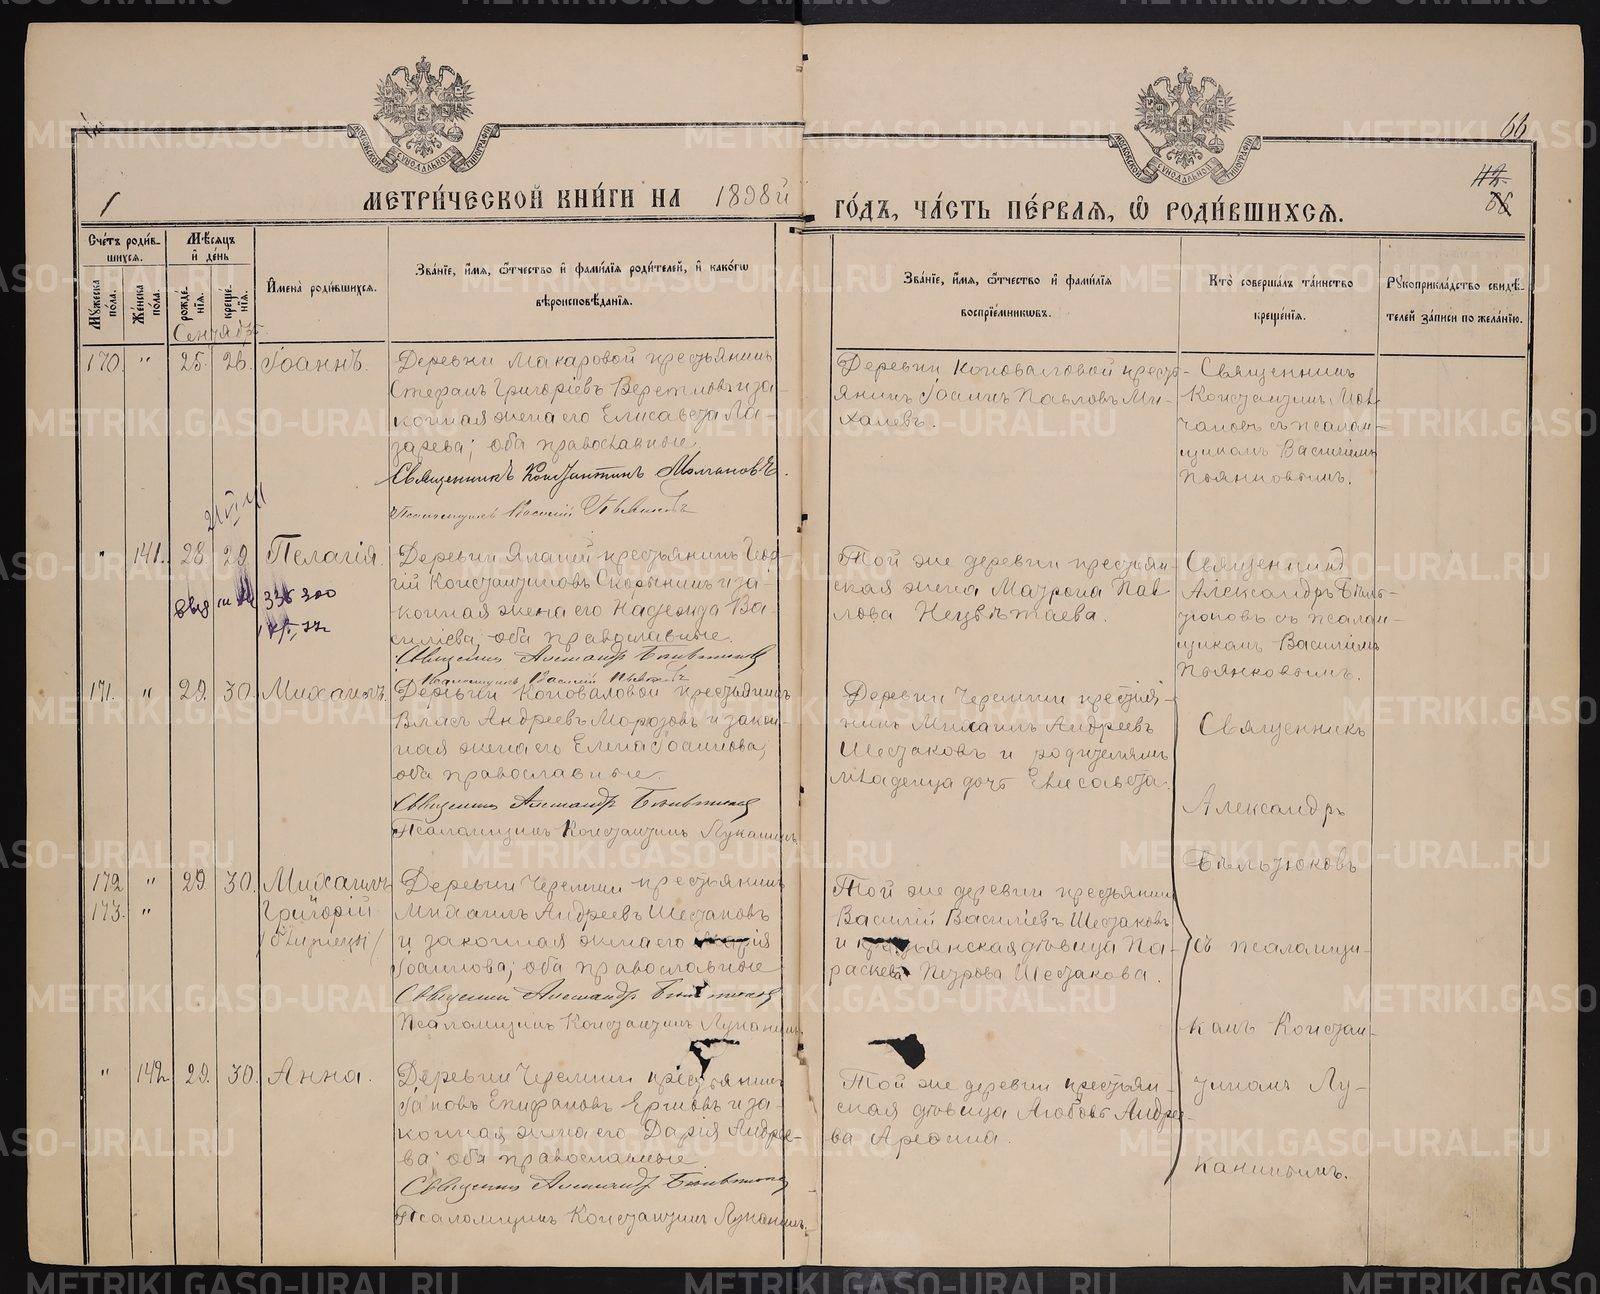 МЕТРИ́ЧЕСКОЙ КНИ́ГИ НА 1898й ГО́ДЪ, ЧА́СТЬ ПЕ́РВАЯ, Ѡ РОДИ́ВШИХСЯ.
1
66
Сче́тъ роди́в-
шихся.
Мѣ́сяцъ
и҆ де́нь
Му́жеска
по́ла.
Же́нска
по́ла.
рожде́-
нія.
креще́-
нія.
Сентябрь.
И҆мена̀ роди́вшихся.
Зва́ніе, и҆́мя, ѻ҆́тчество и҆ фами́лія роди́телей, и҆ како́гѡ
вѣроисповѣ́данія.
Зва́ніе, и҆́мя, ѻ҆́тчество и҆ фами́лія
воспріе́мникѡвъ.
Кто̀ соверша́лъ та́инство
креще́нія.
Рꙋкоприкла́дство свидѣ́-
телей за́писи по жела́нію.
170. " 25. 26. Іоаннъ.
Деревни Макаровой крестьянинъ
Стефанъ Григоріевъ Веретновъ и за-
конная жена его Елисавета Ла-
зарева; оба православные.
Священникъ Константинъ Молчановъ.
Псаломщикъ Василій Пьянковъ
Деревни Коноваловой кресть-
янинъ Іоаннъ Павловъ Ми-
халевъ.
Священникъ
Константинъ Мол-
чановъ съ псалом-
щикомъ Василіемъ
Пьянковымъ.
" 141. 28. 29. Пелагія.
Деревни Яланей крестьянинъ Геор-
гій Константиновъ Скорынинъ и за-
конная жена его Надежда Ва-
силіева; оба православные.
Священникъ Александръ Бѣльтюковъ
Псаломщикъ Василій Пьянковъ
Той же деревни крестьян-
ская жена Матрона Пав-
лова Нецвѣтаева.
Священникъ
Александръ Бѣль-
тюковъ съ псалом-
щикомъ Василіемъ
Пьянковымъ.
171. " 29. 30. Михаилъ.
Деревни Коноваловой крестьянинъ
Власъ Андреевъ Морозовъ и закон-
ная жена его Елена Іоаннова;
оба православные.
Священникъ Александръ Бѣльтюковъ
Псаломщикъ Константинъ Луканинъ
Деревни Черемши крестья-
нинъ Михаилъ Андреевъ
Шестаковъ и родителямъ
младенца дочь Елисавета.
172. " 29. 30. Михаилъ
173. " Григорій
/близнецы/
Деревни Черемши крестьянинъ
Михаилъ Андреевъ Шестаковъ
и законная жена его Марія
Іоаннова; оба православные
Священникъ Александръ Бѣльтюковъ
Псаломщикъ Константинъ Луканинъ.
Той же деревни крестьянинъ
Василій Василіевъ Шестаковъ
и крестьянская дѣвица Па-
раскева Петрова Шестакова.
" 142. 29. 30. Анна.
Деревни Черемши крестьянинъ
Іаковъ Епифановъ Ергинъ и за-
конная жена его Дарія Андрее-
ва; оба православные
Священникъ Александръ Бѣльтюковъ
Псаломщикъ Константинъ Луканинъ.
Той же деревни крестьян-
ская дѣвица Любовь Андрее-
ва Арефина.
Священникъ
Александръ
Бѣльтюковъ
съ псаломщи-
комъ Констан-
тиномъ Лу-
канинымъ.
METRIKI.GASO-URAL.RU